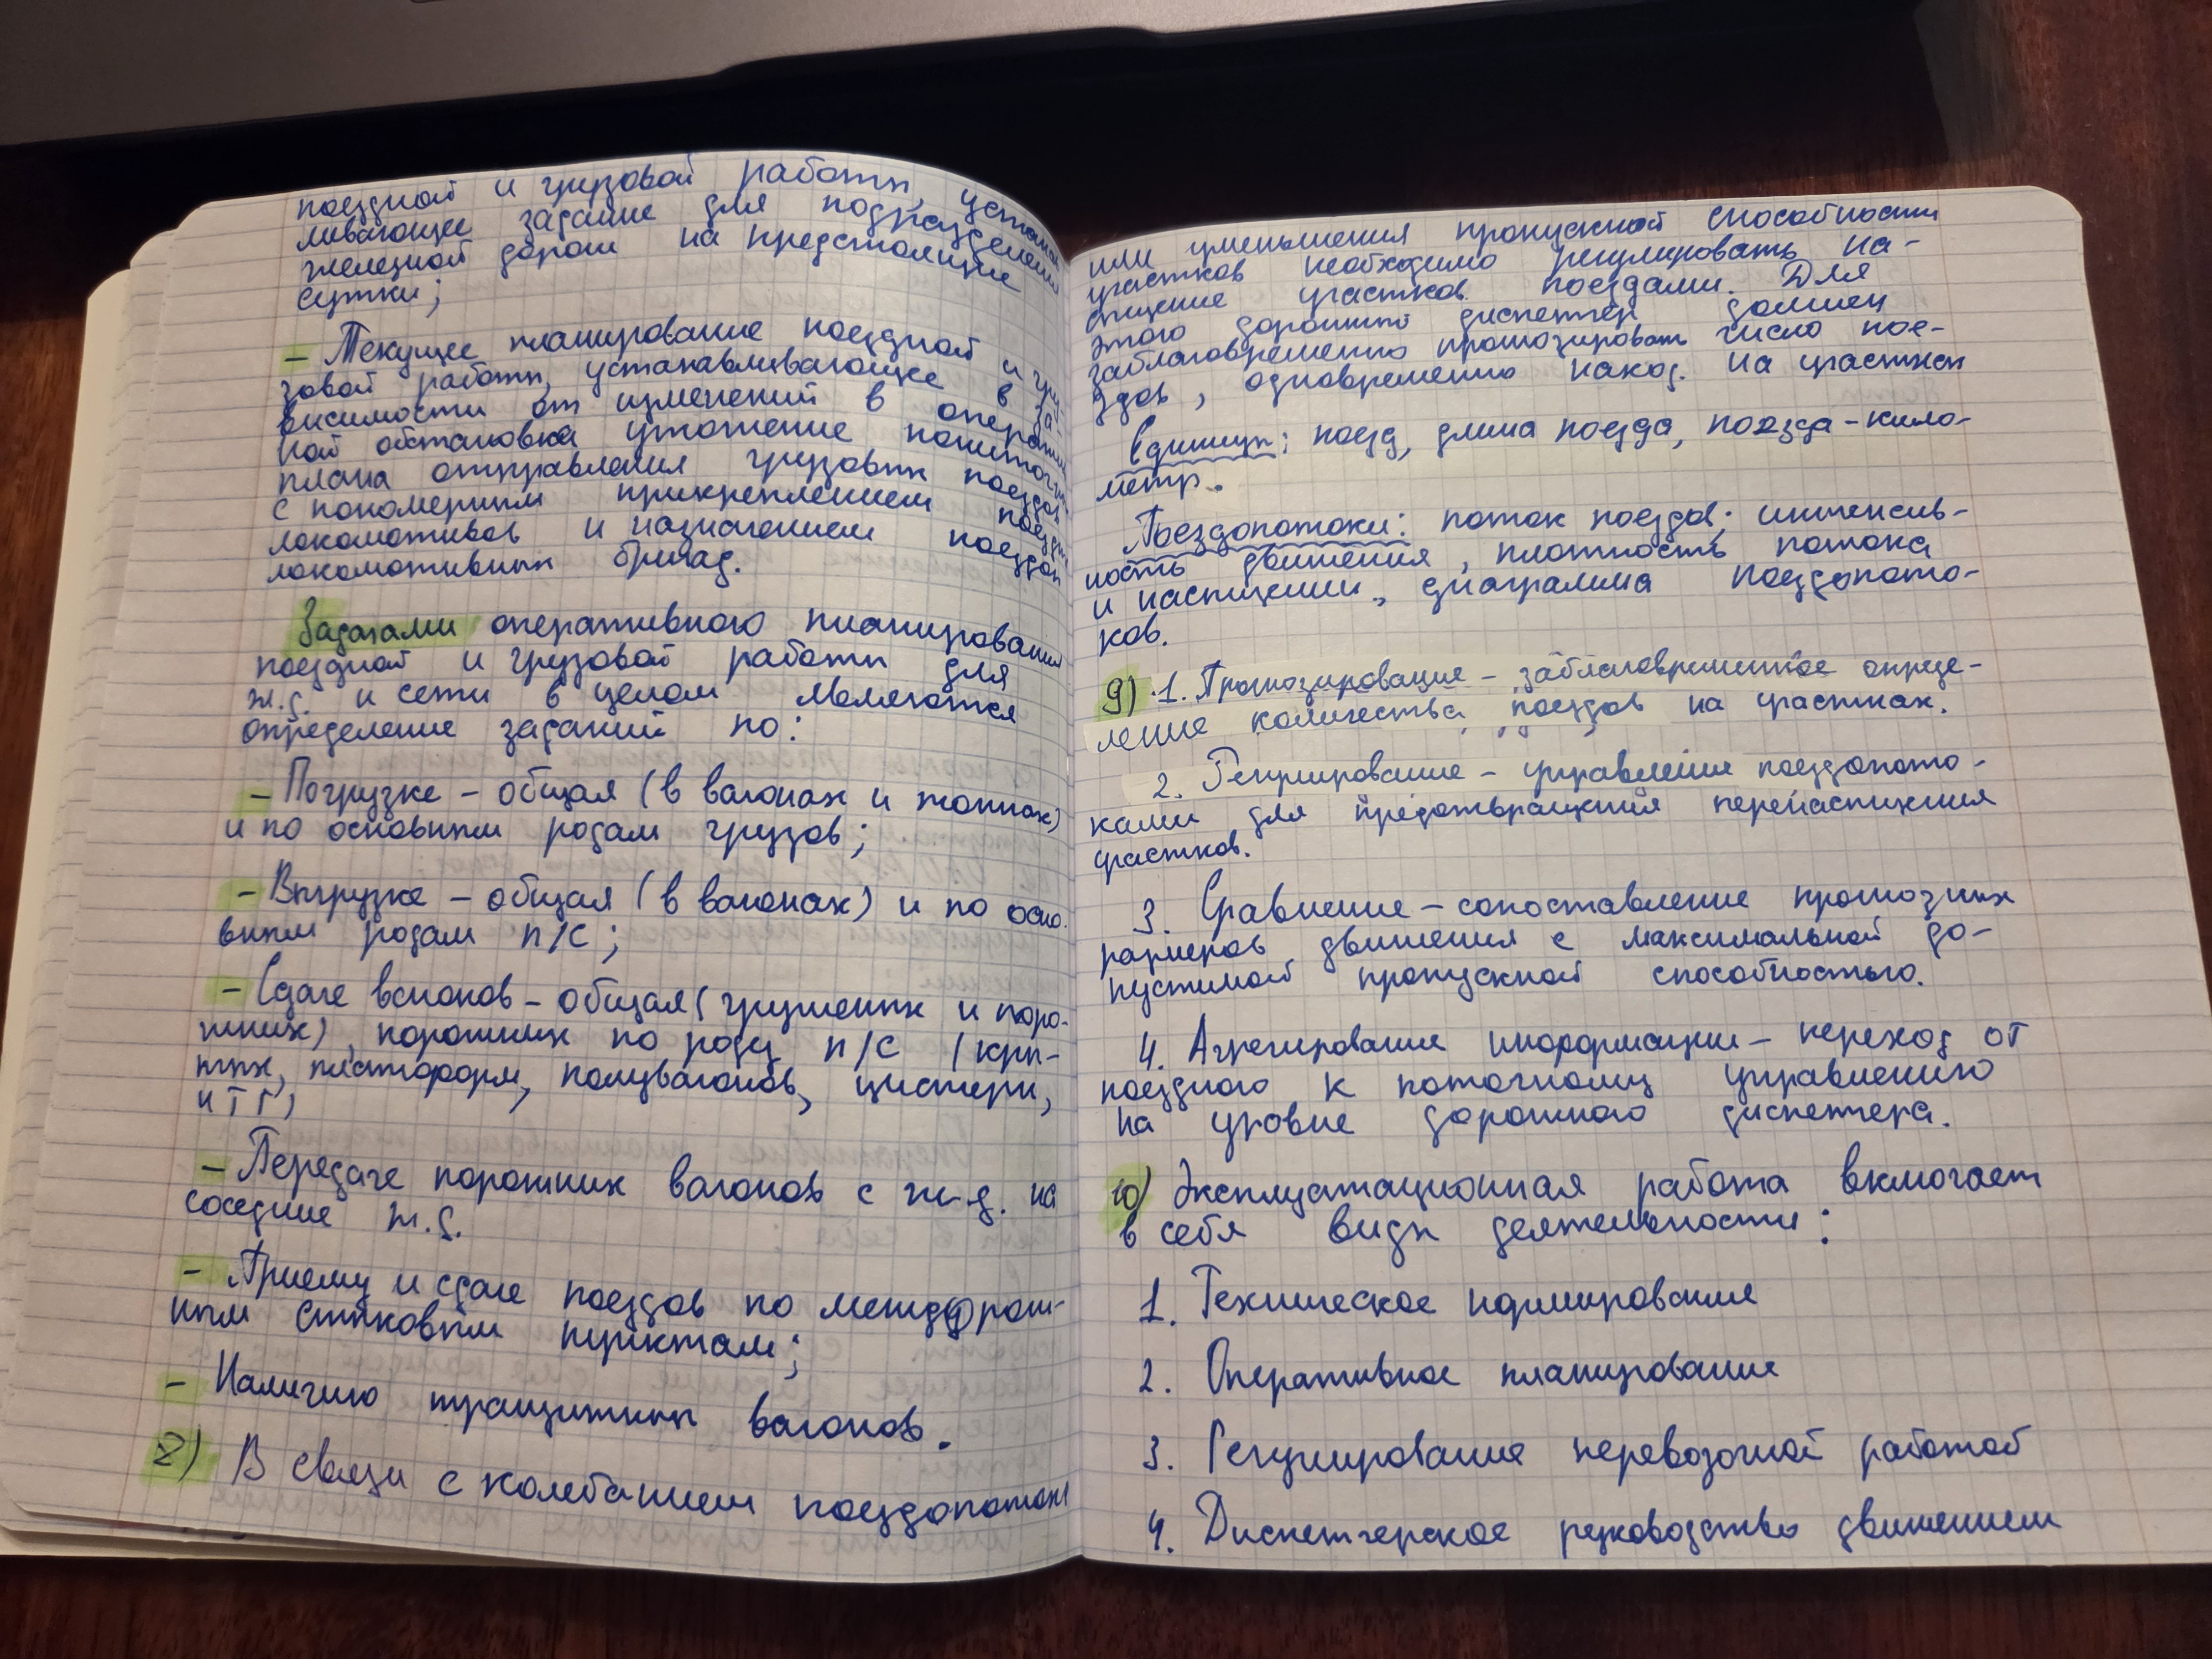 поездной и грузовой работы, устана
ливающее задание для подразделений
железной дороги на предстоящие
сутки;
- Текущее планирование поездной и гру-
зовой работы, устанавливающее в за-
висимости от изменений в оператив
ной обстановке уточнение
плана отправления грузовых поездов
с пономерным прикреплением поездн.
локомотивов и назначением поездов
локомотивных бригад.
Задачами оперативного планирования
поездной и грузовой работы для
ж.д. и сети в целом являются
определение заданий по:
- Погрузке - общая (в вагонах и тоннах)
и по основным родам грузов;
- Выгрузке - общая (в вагонах) и по осно.
вным родам п/с;
- Сдаче вагонов - общая (груженых и поро-
жних), порожних по роду п/с (кры-
тых, платформ, полувагонов, цистерн,
и т г;
- Передаче порожних вагонов с ж.д. на
соседние ж.д.
- Приему и сдаче поездов по междорож-
ным стыковым пунктам;
- Наличию транзитных вагонов.
8) В связи с колебанием поездопотока
или уменьшения пропускной способности
участков необходимо регулировать на-
сыщение участков поездами. Для
этого дорожный диспетчер должен
заблаговременно прогнозировать число пое-
здов, одновременно наход. на участках
Единицы: поезд, длина поезда, поезда-кило-
метр.
Поездопотоки: поток поездов; интенсив-
ность движения, плотность потока
и насыщении, диаграмма поездопото-
ков.
9) 1. Прогнозирование - заблаговременное опреде-
ление количества поездов на участках.
2. Регулирование - управление поездопото-
ками для предотвращения перенасыщения
участков.
3. Сравнение - сопоставление прогнозных
размеров движения с максимальной до-
пустимой пропускной способностью.
4. Агрегирование информации - переход от
поездного к поточному управлению
на уровне дорожного диспетчера.
10) Эксплуатационная работа включает
в себя виды деятельности:
1. Техническое нормирование
2. Оперативное планирование
3. Регулирование перевозочной работой
4. Диспетчерское руководство движением